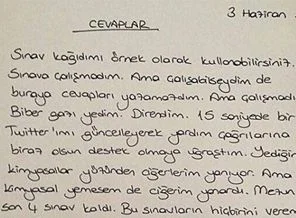 3 Haziran
CEVAPLAR
Sınav kağıdımı örnek olarak kullanabilirsiniz.
Sınava çalışmadım. Ama çalışabilseydim de
buraya cevapları yazamazdım. Ama çalışmadı
Biber gazı yedim. Direndim. 15 saniyede bir
Twitter'ımı güncelleyerek yardım çağrılarına
biraz olsun destek olmaya uğraştım. Yediğim
kimyasallar yüzünden ciğerlerim yanıyor. Ama
kimyasal yemesem de ciğerim yanardı. Mezun
son 4 sınav kaldı. Bu sınavların hiçbirini veren